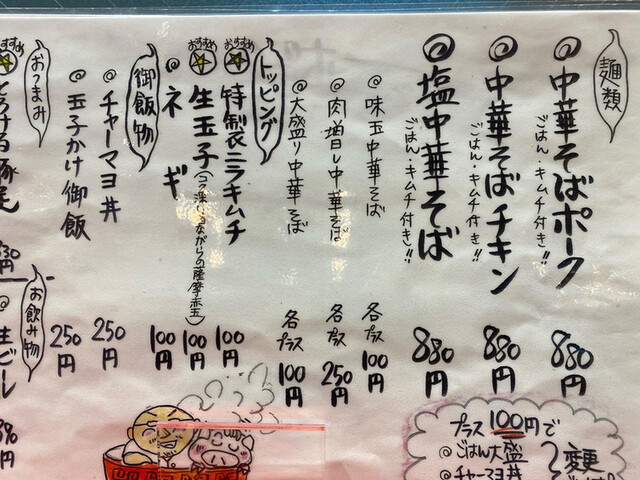 麺類
◎中華そばポーク
ごはん・キムチ付き!!
880円
◎中華そばチキン
ごはん・キムチ付き!!
880円
◎塩中華そば
ごはん・キムチ付き!!
880円
◎味玉中華そば
各プラス100円
◎肉増し中華そば
各プラス250円
◎大盛り中華そば
各プラス100円
トッピング
おすすめ
特製ニラキムチ
100円
おすすめ
生玉子(コク深い昔ながらの薩摩赤玉)
100円
◎ネギ
100円
御飯物
◎チャーマヨ丼
250円
◎玉子かけ御飯
250円
おつまみ
おすすめ
とろける豚足
330円
お飲み物
◎生ビール
プラス100円で
◎ごはん大盛
◎チャーマヨ丼
変更